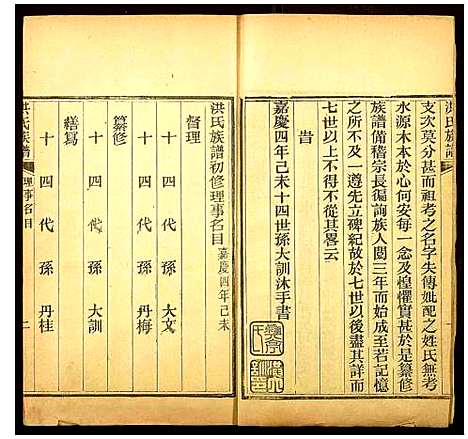 洪氏族譜
支次莫分甚而祖考之名字失傳妣配之姓氏無考
水源木本於心何安每一念及惶懼實甚於是纂修
族譜備稽宗長徧詢族人閱三年而成編若記憶
之所不及一遵先立碑紀故於七世以後盡其詳而
七世以上不得不從其畧云
旹
嘉慶四年己未十四世孫大訓沐手書
洪氏族譜初修理事名目 嘉慶四年己未
督理
十四代孫 大文
十四代孫 丹梅
纂修
十四代孫 大訓
繕寫
十四代孫 丹桂
洪氏族譜 理事名目 二